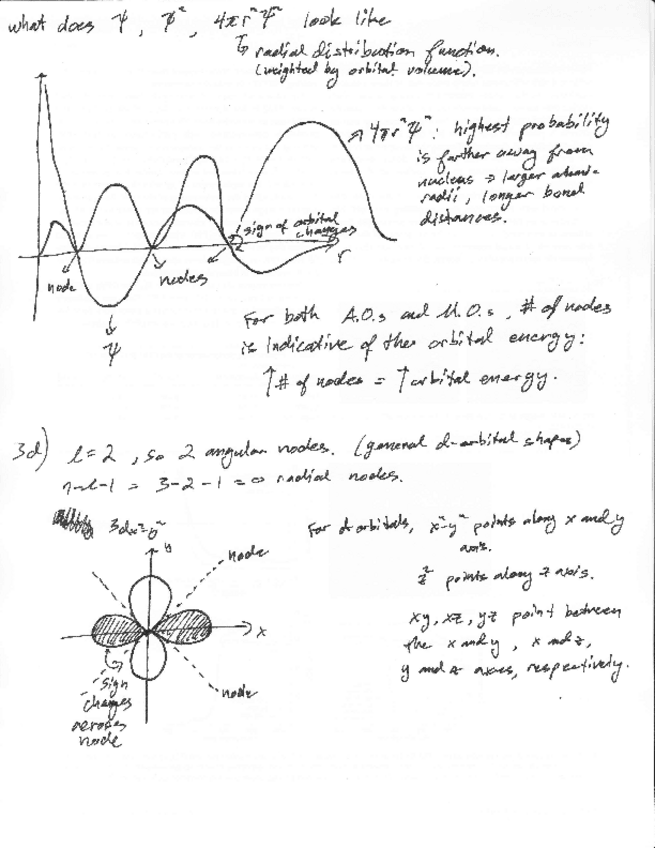 what does ψ, ψ², 4πr²ψ² look like
↳ radial distribution function.
(weighted by orbital volume).
→ 4πr²ψ²: highest probability
is farther away from
nucleus → larger atomic
radii, longer bond
distances.
sign of orbital
changes
r
node
nodes
ψ
For both A.O.s and M.O.s, # of nodes
is indicative of the orbital energy:
↑# of nodes = ↑orbital energy.
3d) l=2, so 2 angular nodes. (general d-orbital shapes)
n-l-1 = 3-2-1 = 0 radial nodes.
3dx²-y²
y
node
x
node
sign
changes
across
node
For d orbitals, x²-y² points along x and y
axis.
z² points along z axis.
xy, xz, yz point between
the x and y, x and z,
y and z axes, respectively.